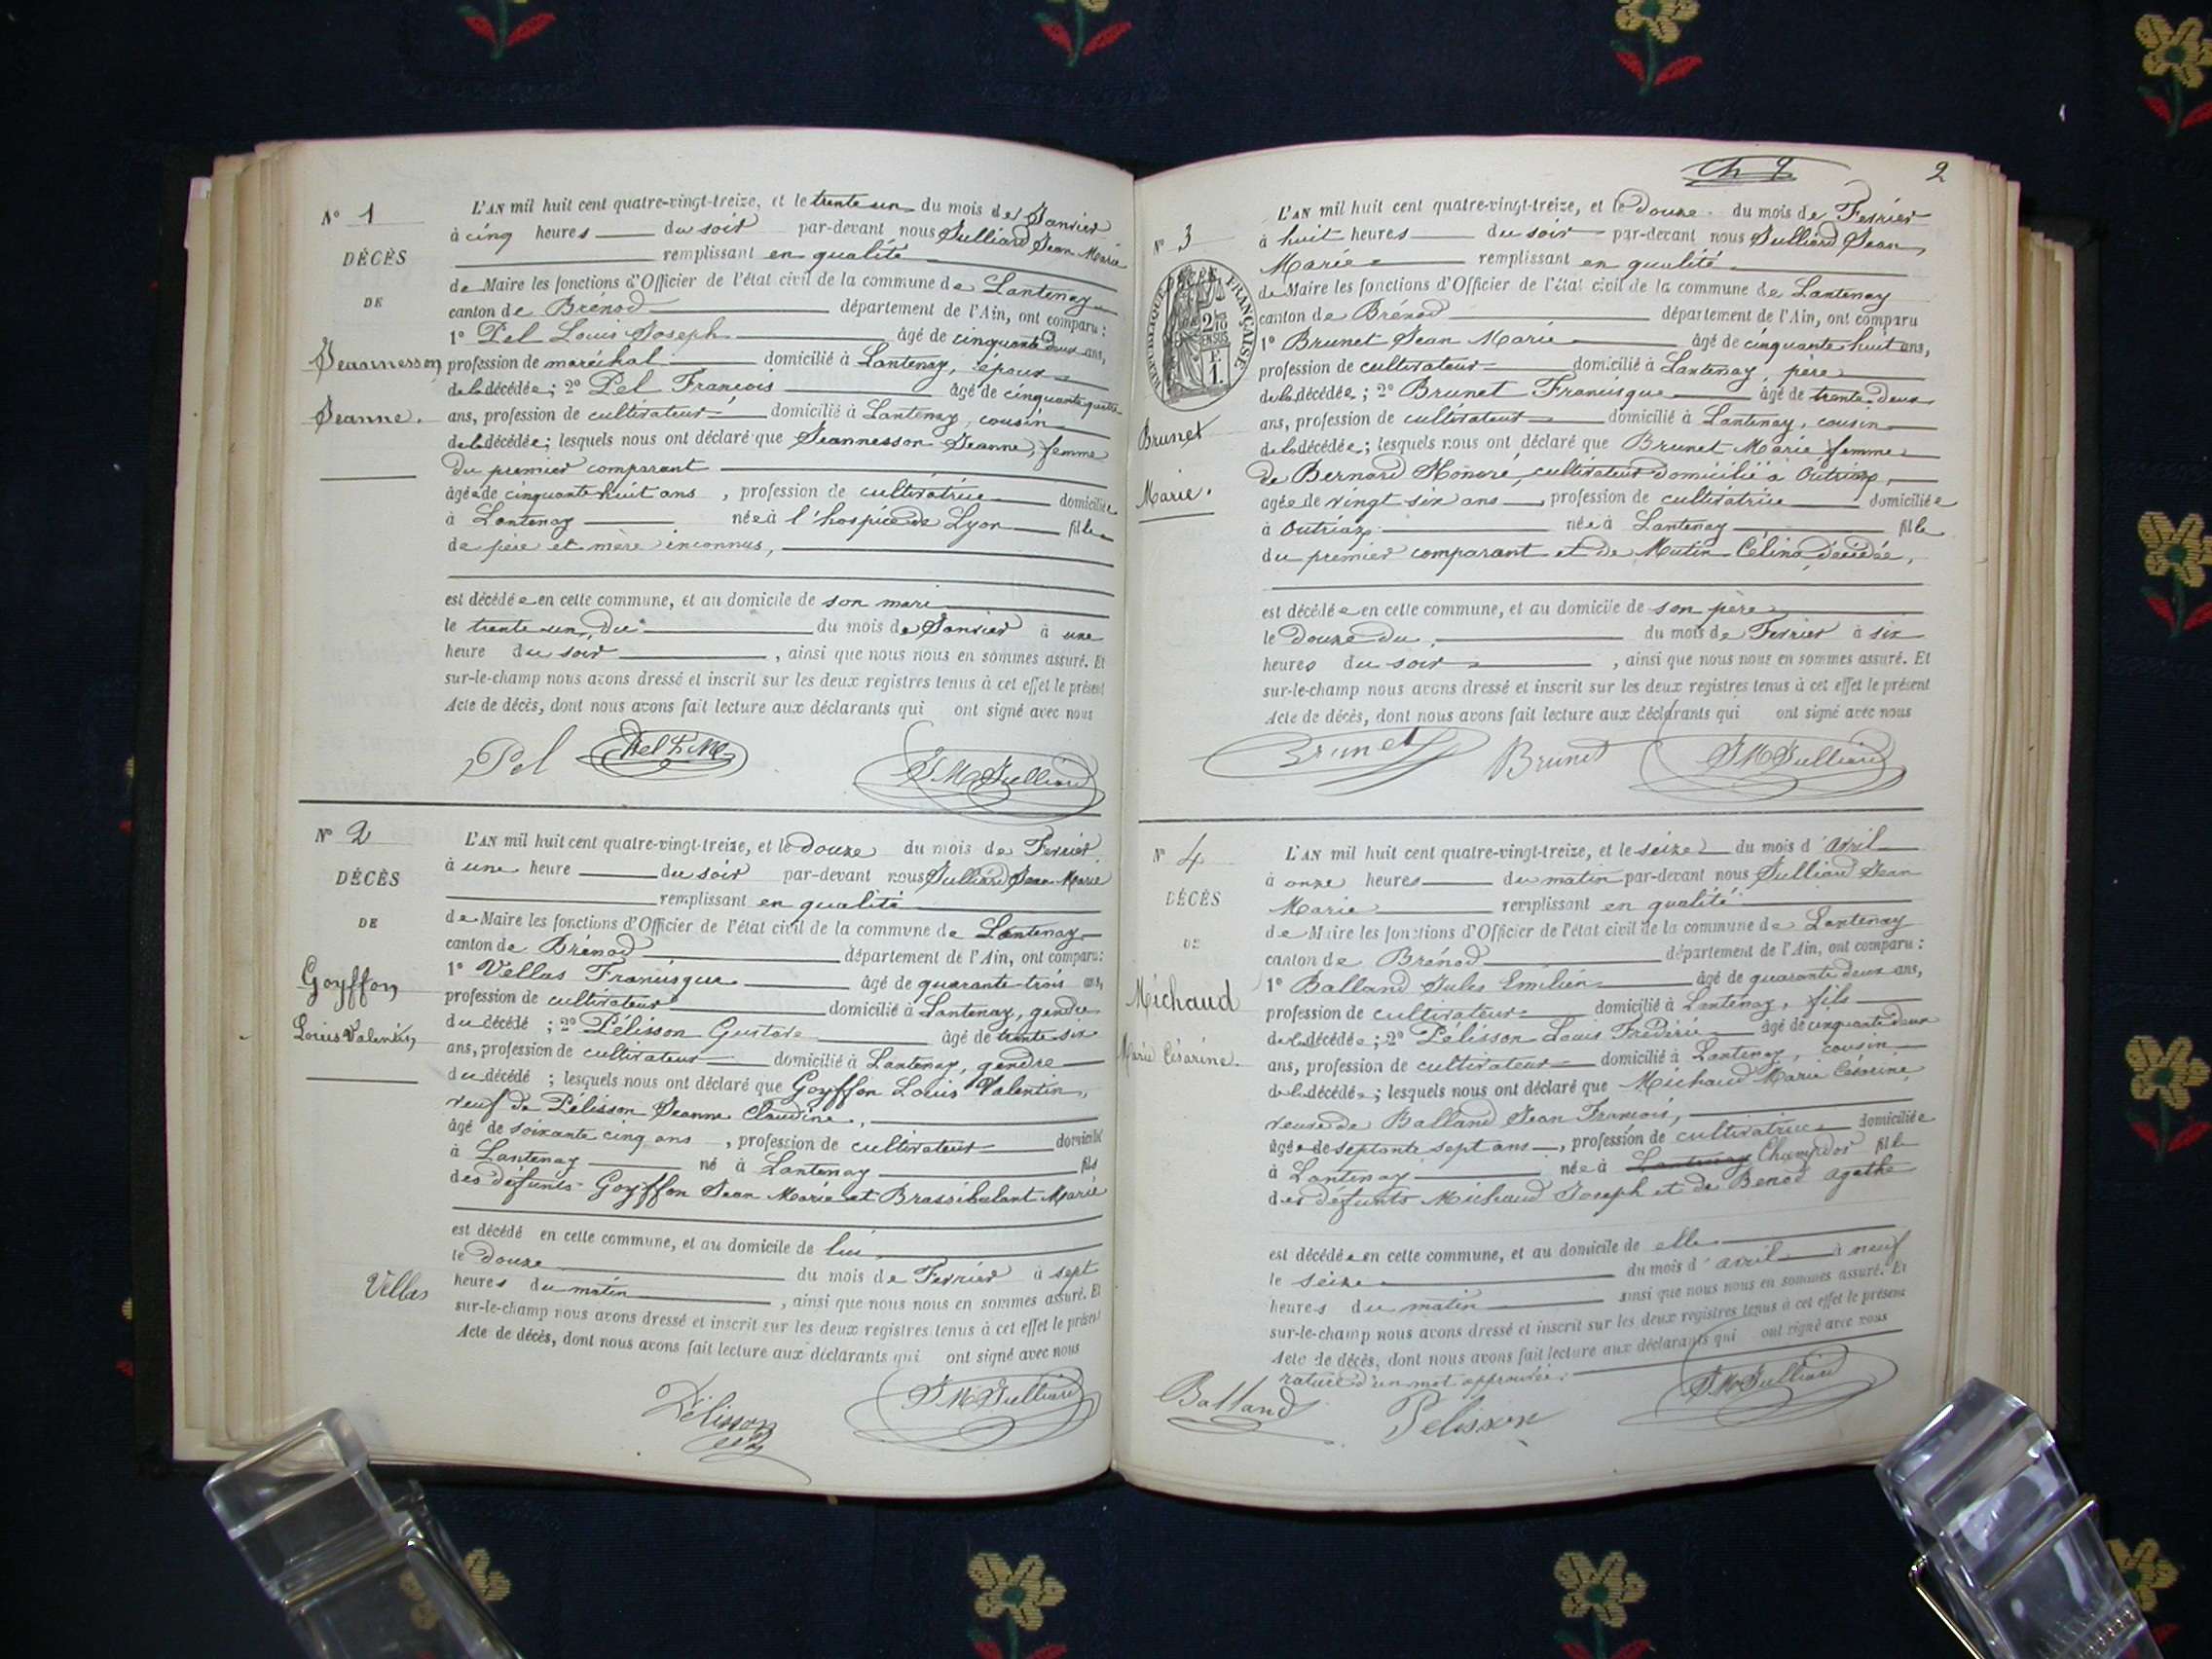 N° 1
DÉCÈS
DE
Jeannesson
Jeanne.
L'AN mil huit cent quatre-vingt-treize, et le trente un du mois de Janvier
à cinq heures du soir par-devant nous Julliard Jean Marie
remplissant en qualité
de Maire les fonctions d'Officier de l'état civil de la commune de Lantenay
canton de Brenod département de l'Ain, ont comparu :
1° Pel Louis Joseph âgé de cinquante deux ans,
profession de maréchal domicilié à Lantenay, époux
de la décédée ; 2° Pel François âgé de cinquante quatre
ans, profession de cultivateur domicilié à Lantenay, cousin
de la décédée ; lesquels nous ont déclaré que Jeannesson Jeanne, femme
du premier comparant
âgée de cinquante huit ans , profession de cultivatrice domiciliée
à Lantenay née à l'hospice de Lyon fille
de père et mère inconnus,
est décédée en cette commune, et au domicile de son mari
le trente-un, du du mois de Janvier à une
heure du soir , ainsi que nous nous en sommes assuré. Et
sur-le-champ nous avons dressé et inscrit sur les deux registres tenus à cet effet le présent
Acte de décès, dont nous avons fait lecture aux déclarants qui ont signé avec nous
Pel J. M. Julliard
N° 2
DÉCÈS
DE
Goyffon
Louis Valentin
L'AN mil huit cent quatre-vingt-treize, et le douze du mois de Fevrier
à une heure du soir par-devant nous Julliard Jean Marie
remplissant en qualité
de Maire les fonctions d'Officier de l'état civil de la commune de Lantenay
canton de Brenod département de l'Ain, ont comparu :
1° Vellas Francisque âgé de quarante-trois ans,
profession de cultivateur domicilié à Lantenay, gendre
du décédé ; 2° Pélisson Gustave âgé de trente six
ans, profession de cultivateur domicilié à Lantenay, gendre
du décédé ; lesquels nous ont déclaré que Goyffon Louis Valentin,
veuf de Pélisson Jeanne Claudine,
âgé de soixante cinq ans , profession de cultivateur domicilié
à Lantenay né à Lantenay fils
des défunts Goyffon Jean Marie et Brassibulant Marie
est décédé en cette commune, et au domicile de lui
le douze du mois de Fevrier à sept
heures du matin , ainsi que nous nous en sommes assuré. Et
sur-le-champ nous avons dressé et inscrit sur les deux registres tenus à cet effet le présent
Acte de décès, dont nous avons fait lecture aux déclarants qui ont signé avec nous
Vellas Pélisson J. M. Julliard
2
N° 3
RÉPUBLIQUE FRANÇAISE
Brunet
Marie.
L'AN mil huit cent quatre-vingt-treize, et le douze du mois de Fevrier
à huit heures du soir par-devant nous Julliard Jean
Marie remplissant en qualité
de Maire les fonctions d'Officier de l'état civil de la commune de Lantenay
canton de Brénod département de l'Ain, ont comparu
1° Brunet Jean Marie âgé de cinquante huit ans,
profession de cultivateur domicilié à Lantenay, père
de la décédée ; 2° Brunet Francisque âgé de trente deux
ans, profession de cultivateur domicilié à Lantenay, cousin
de la décédée ; lesquels nous ont déclaré que Brunet Marie femme
de Bernard Honoré, cultivateur domicilié à Outriaz,
âgée de vingt six ans , profession de cultivatrice domiciliée
à Outriaz née à Lantenay fille
du premier comparant et de Mutin Célina, décédée,
est décédée en cette commune, et au domicile de son père
le douze du du mois de Fevrier à six
heures du soir , ainsi que nous nous en sommes assuré. Et
sur-le-champ nous avons dressé et inscrit sur les deux registres tenus à cet effet le présent
Acte de décès, dont nous avons fait lecture aux déclarants qui ont signé avec nous
Brunet Brunet J M Julliard
N° 4
DÉCÈS
DE
Michaud
Marie Césarine.
L'AN mil huit cent quatre-vingt-treize, et le seize du mois d'avril
à onze heures du matin par-devant nous Julliard Jean
Marie remplissant en qualité
de Maire les fonctions d'Officier de l'état civil de la commune de Lantenay
canton de Brénod département de l'Ain, ont comparu :
1° Balland Jules Emilien âgé de quarante deux ans,
profession de cultivateur domicilié à Lantenay, fils
de la décédée ; 2° Pélisson Louis Frédéric âgé de cinquante deux
ans, profession de cultivateur domicilié à Lantenay, cousin
de la décédée ; lesquels nous ont déclaré que Michaud Marie Césarine
veuve de Balland Jean François,
âgée de septante sept ans , profession de cultivatrice domiciliée
à Lantenay née à Lantenay Champdor fille
des défunts Michaud Joseph et de Benod Agathe
est décédée en cette commune, et au domicile de elle
le seize du mois d'avril à neuf
heures du matin ainsi que nous nous en sommes assuré. Et
sur-le-champ nous avons dressé et inscrit sur les deux registres tenus à cet effet le présent
Acte de décès, dont nous avons fait lecture aux déclarants qui ont signé avec nous
rature d'un mot approuvée.
Balland Pelisson J. M. Julliard